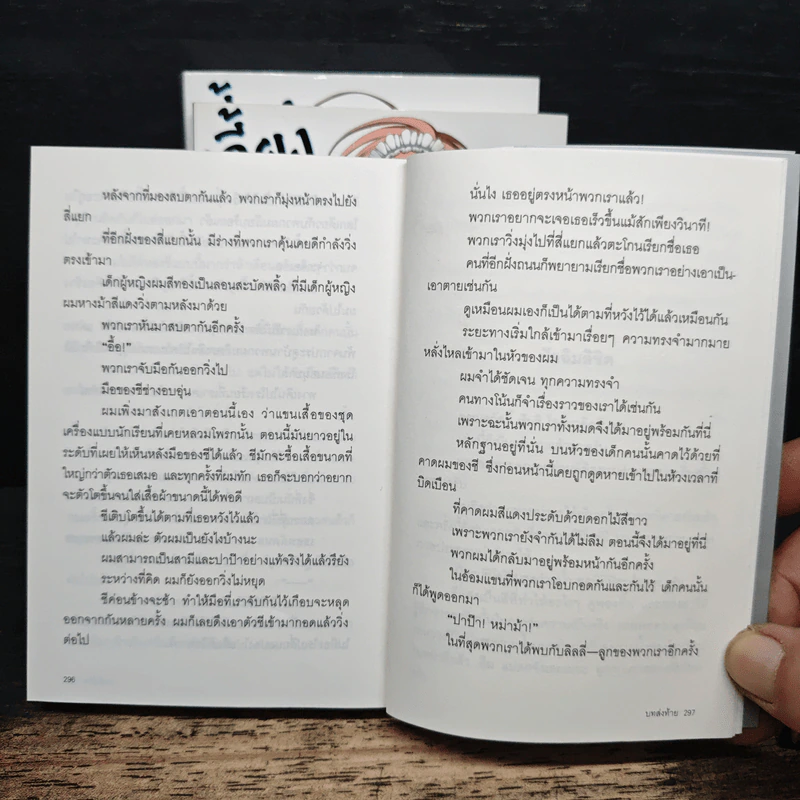 นี้
หลังจากที่มองสบตากันแล้ว พวกเราก็มุ่งหน้าตรงไปยัง
สี่แยก
ที่อีกฝั่งของสี่แยกนั้น มีร่างที่พวกเราคุ้นเคยดีกำลังวิ่ง
ตรงเข้ามา
เด็กผู้หญิงผมสีทองเป็นลอนสะบัดพลิ้ว ที่มีเด็กผู้หญิง
ผมหางม้าสีแดงวิ่งตามหลังมาด้วย
พวกเราหันมาสบตากันอีกครั้ง
“อื้อ!”
พวกเราจับมือกันออกวิ่งไป
มือของชีช่างอบอุ่น
ผมเพิ่งมาสังเกตเอาตอนนี้เอง ว่าแขนเสื้อของชุด
เครื่องแบบนักเรียนที่เคยหลวมโพรกนั้น ตอนนี้มันยาวอยู่ใน
ระดับที่เผยให้เห็นหลังมือของชีได้แล้ว ชีมักจะซื้อเสื้อขนาดที่
ใหญ่กว่าตัวเธอเสมอ และทุกครั้งที่ผมทัก เธอก็จะบอกว่าอยาก
จะตัวโตขึ้นจนใส่เสื้อผ้าขนาดนี้ได้พอดี
ชีเติบโตขึ้นได้ตามที่เธอหวังไว้แล้ว
แล้วผมล่ะ ตัวผมเป็นยังไงบ้างนะ
ผมสามารถเป็นสามีและปาป๊าอย่างแท้จริงได้แล้วรึยัง
ระหว่างที่คิด ผมก็ยังออกวิ่งไม่หยุด
ชีค่อนข้างจะช้า ทำให้มือที่เราจับกันไว้เกือบจะหลุด
ออกจากกันหลายครั้ง ผมก็เลยดึงเอาตัวชีเข้ามากอดแล้ววิ่ง
ต่อไป
296
นั่นไง เธออยู่ตรงหน้าพวกเราแล้ว!
พวกเราอยากจะเจอเธอเร็วขึ้นแม้สักเพียงวินาที!
พวกเราวิ่งมุ่งไปที่สี่แยกแล้วตะโกนเรียกชื่อเธอ
คนที่อีกฝั่งถนนก็พยายามเรียกชื่อพวกเราอย่างเอาเป็น-
เอาตายเช่นกัน
ดูเหมือนผมเองก็เป็นได้ตามที่หวังไว้ได้แล้วเหมือนกัน
ระยะทางเริ่มใกล้เข้ามาเรื่อยๆ ความทรงจำมากมาย
หลั่งไหลเข้ามาในหัวของผม
ผมจำได้ชัดเจน ทุกความทรงจำ
คนทางโน้นก็จำเรื่องราวของเราได้เช่นกัน
เพราะฉะนั้นพวกเราทั้งหมดจึงได้มาอยู่พร้อมกันที่นี่
หลักฐานอยู่ที่นั่น บนหัวของเด็กคนนั้นคาดไว้ด้วยที่
คาดผมของชี ซึ่งก่อนหน้านี้เคยถูกดูดหายเข้าไปในห้วงเวลาที่
บิดเบือน
ที่คาดผมสีแดงประดับด้วยดอกไม้สีขาว
เพราะพวกเรายังจำกันได้ไม่ลืม ตอนนี้จึงได้มาอยู่ที่นี่
พวกผมได้กลับมาอยู่พร้อมหน้ากันอีกครั้ง
ในอ้อมแขนที่พวกเราโอบกอดกันและกันไว้ เด็กคนนั้น
ก็ได้พูดออกมา
“ปาป๊า! หม่าม้า!”
ในที่สุดพวกเราได้พบกับลิลลี่—ลูกของพวกเราอีกครั้ง
บทส่งท้าย 297